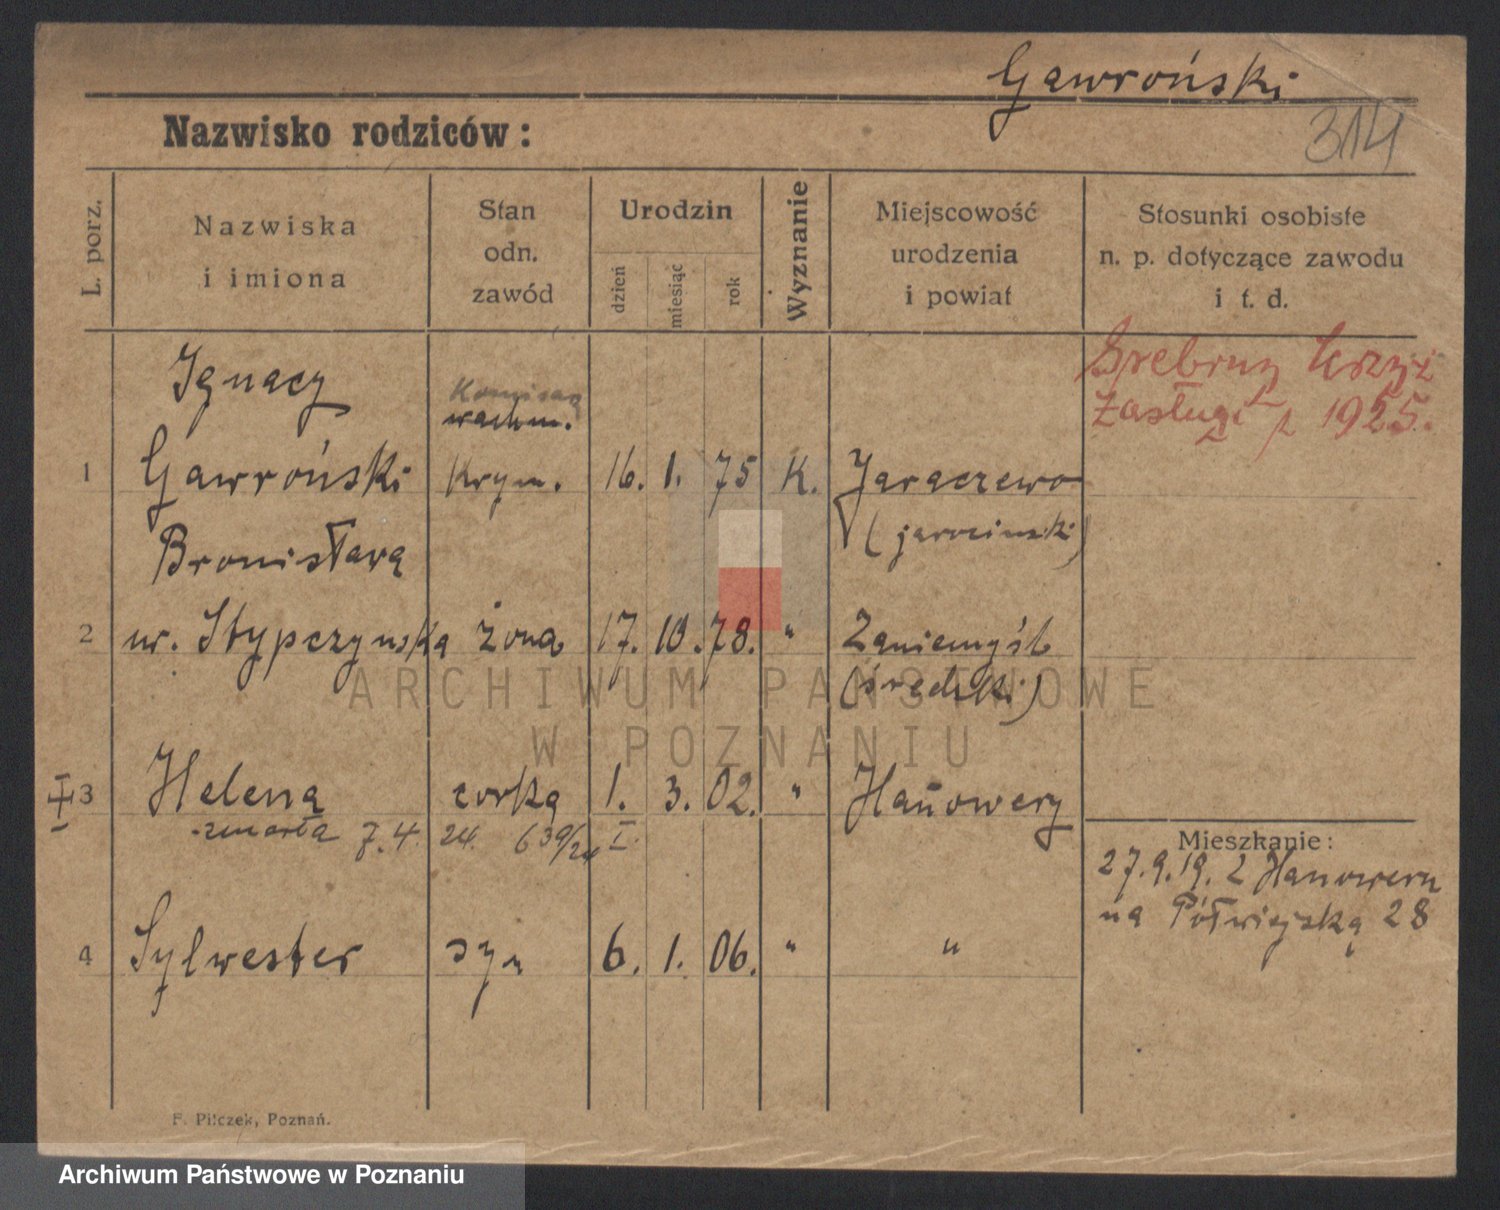 Gawroński
314
Nazwisko rodziców:
L. porz.
Nazwiska
i imiona
Stan
odn.
zawód
Urodzin
dzień
miesiąc
rok
Wyznanie
Miejscowość
urodzenia
i powiat
Stosunki osobiste
n. p. dotyczące zawodu
i t. d.
Srebrny krzyż
zasługi 1925.
Ignacy
Komisarz
wachm.
1 Gawroński Krym. 16. 1. 75 K. Jaraczewo
(jarocinski)
Bronisława
2 ur. Stypczyńska żona 17. 10. 78. " Zaniemyśl
(średzki)
3 Helena corka 1. 3. 02. " Hanower
zmarła 7.4. 24. 639/24 I.
4 Sylwester syn 6. 1. 06. " "
Mieszkanie:
27.9.19. z Hanoweru
na Półwiejską 28
F. Pilczek, Poznań.
ARCHIWUM PAŃSTWOWE
W POZNANIU
Archiwum Państwowe w Poznaniu